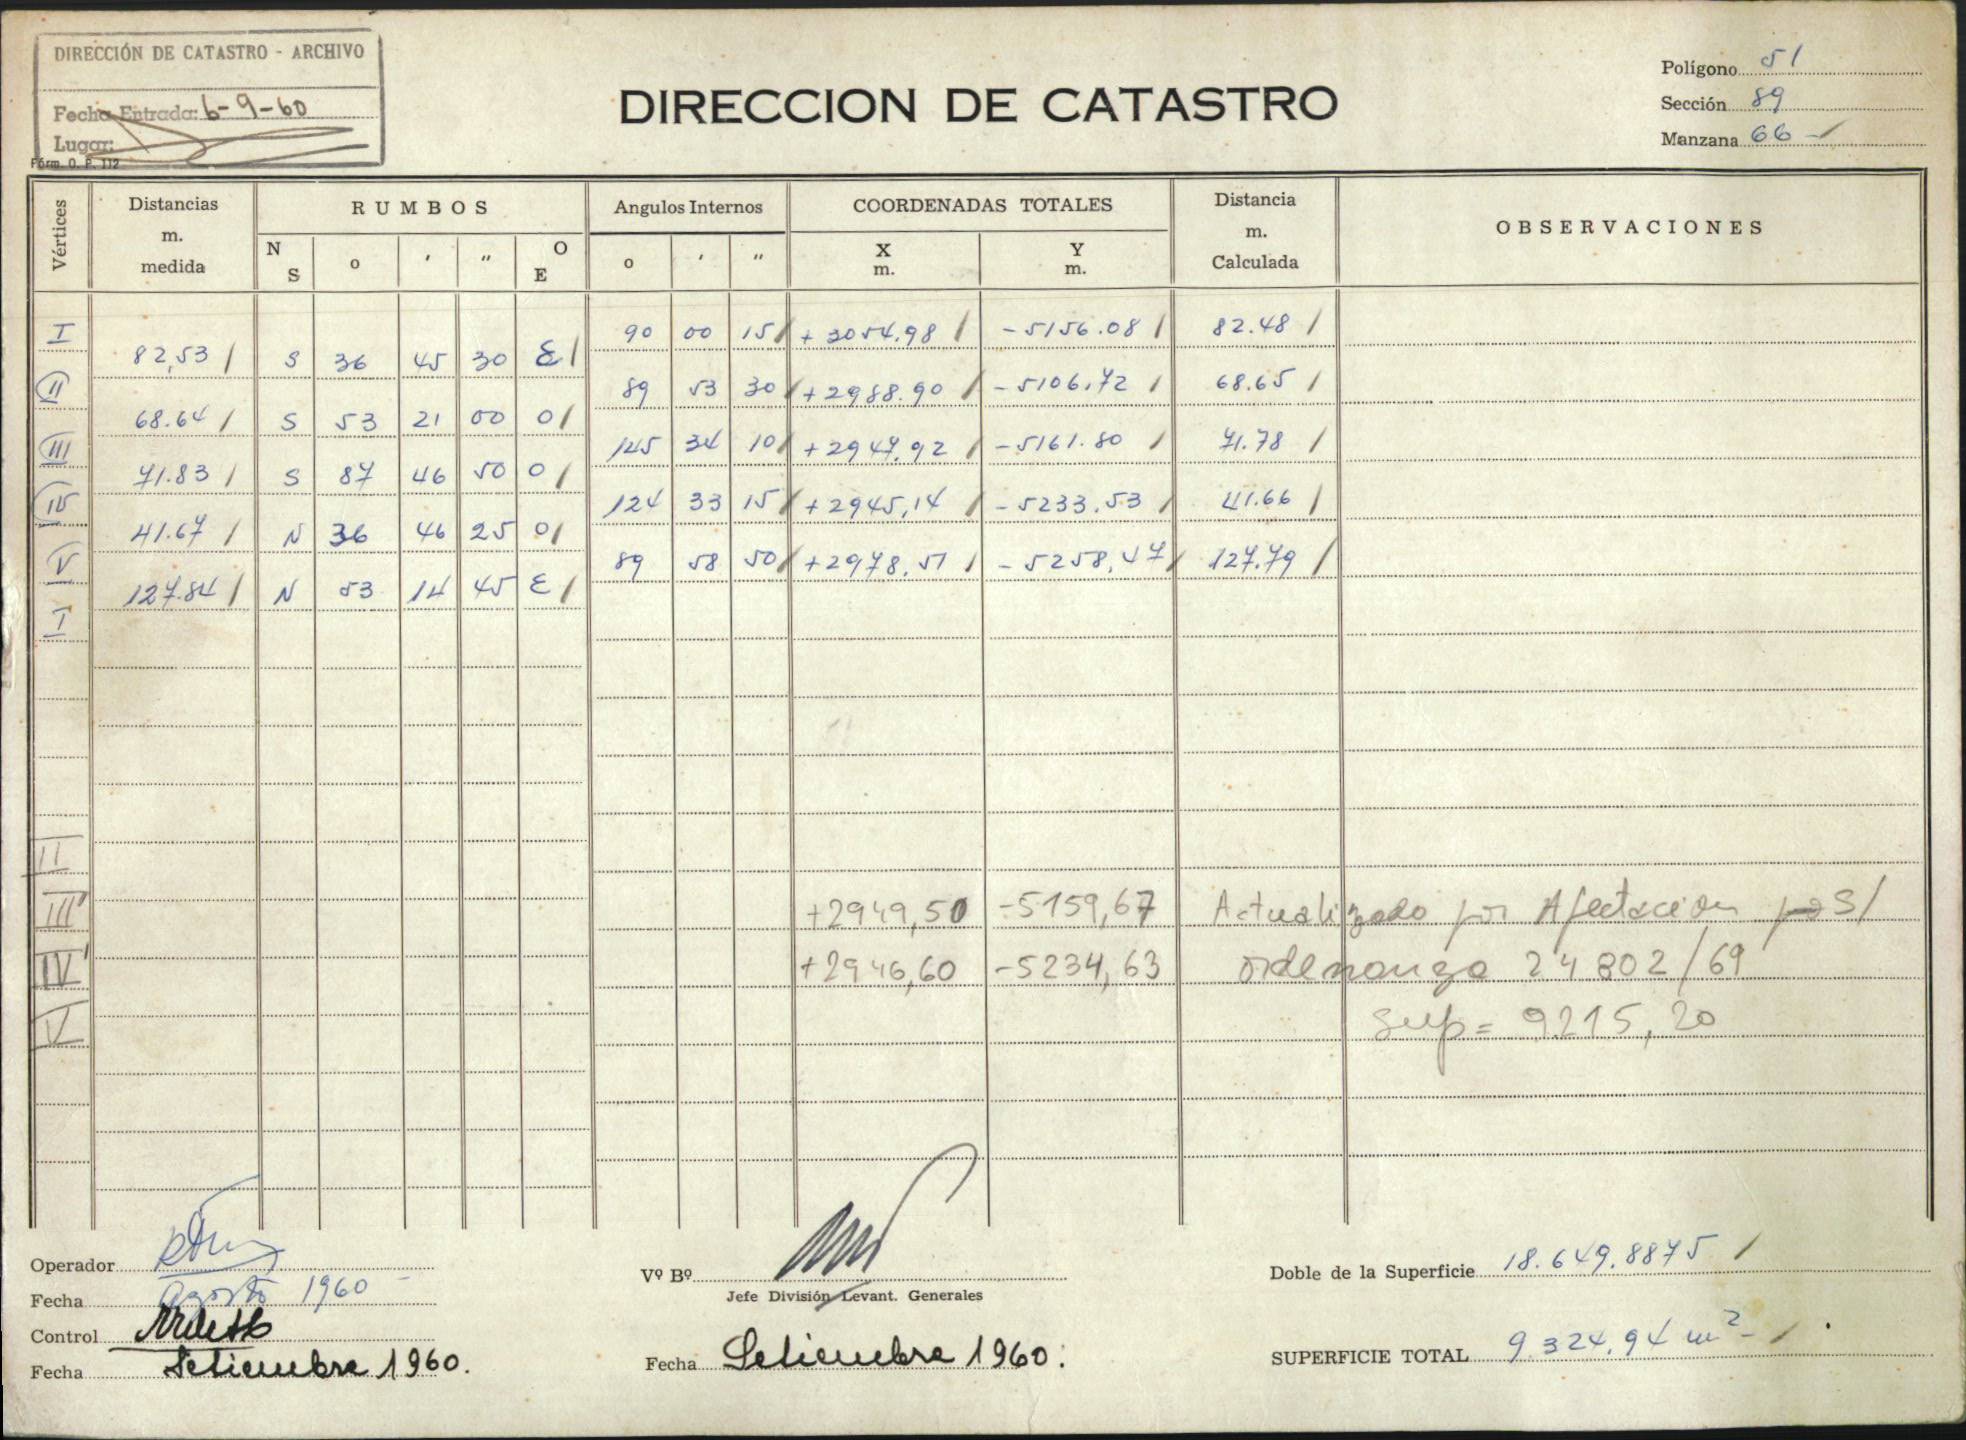 DIRECCIÓN DE CATASTRO - ARCHIVO
Fecha Entrada: 6-9-60
Lugar:
Fórm. O. P. 112
DIRECCION DE CATASTRO
Polígono 51
Sección 89
Manzana 66 -
Vértices
Distancias m. medida
RUMBOS
N S o ' " O E
Angulos Internos
o ' "
COORDENADAS TOTALES
X m. Y m.
Distancia m. Calculada
OBSERVACIONES
I 90 00 15 +3054.98 -5156.08 82.48
82,53 S 36 45 30 E
II 89 53 30 +2988.90 -5106,72 68.65
68.64 S 53 21 00 O
III 145 34 10 +2947,92 -5161.80 71.78
71.83 S 87 46 50 O
IV 124 33 15 +2945,14 -5233.53 41.66
41.67 N 36 46 25 O
V 89 58 50 +2978,51 -5258,47 127.79
127.84 N 53 14 45 E
I
II
III' +2949,50 -5159,67 Actualizado por Afectación S/
IV' +2946,60 -5234,63 ordenanza 24802/69
V Sup= 9215,20
Operador
Fecha Agosto 1960 -
Control
Fecha Setiembre 1960.
Vº Bº
Jefe División Levant. Generales
Fecha Setiembre 1960.
Doble de la Superficie 18.649.8875
SUPERFICIE TOTAL 9.324,94 m² -